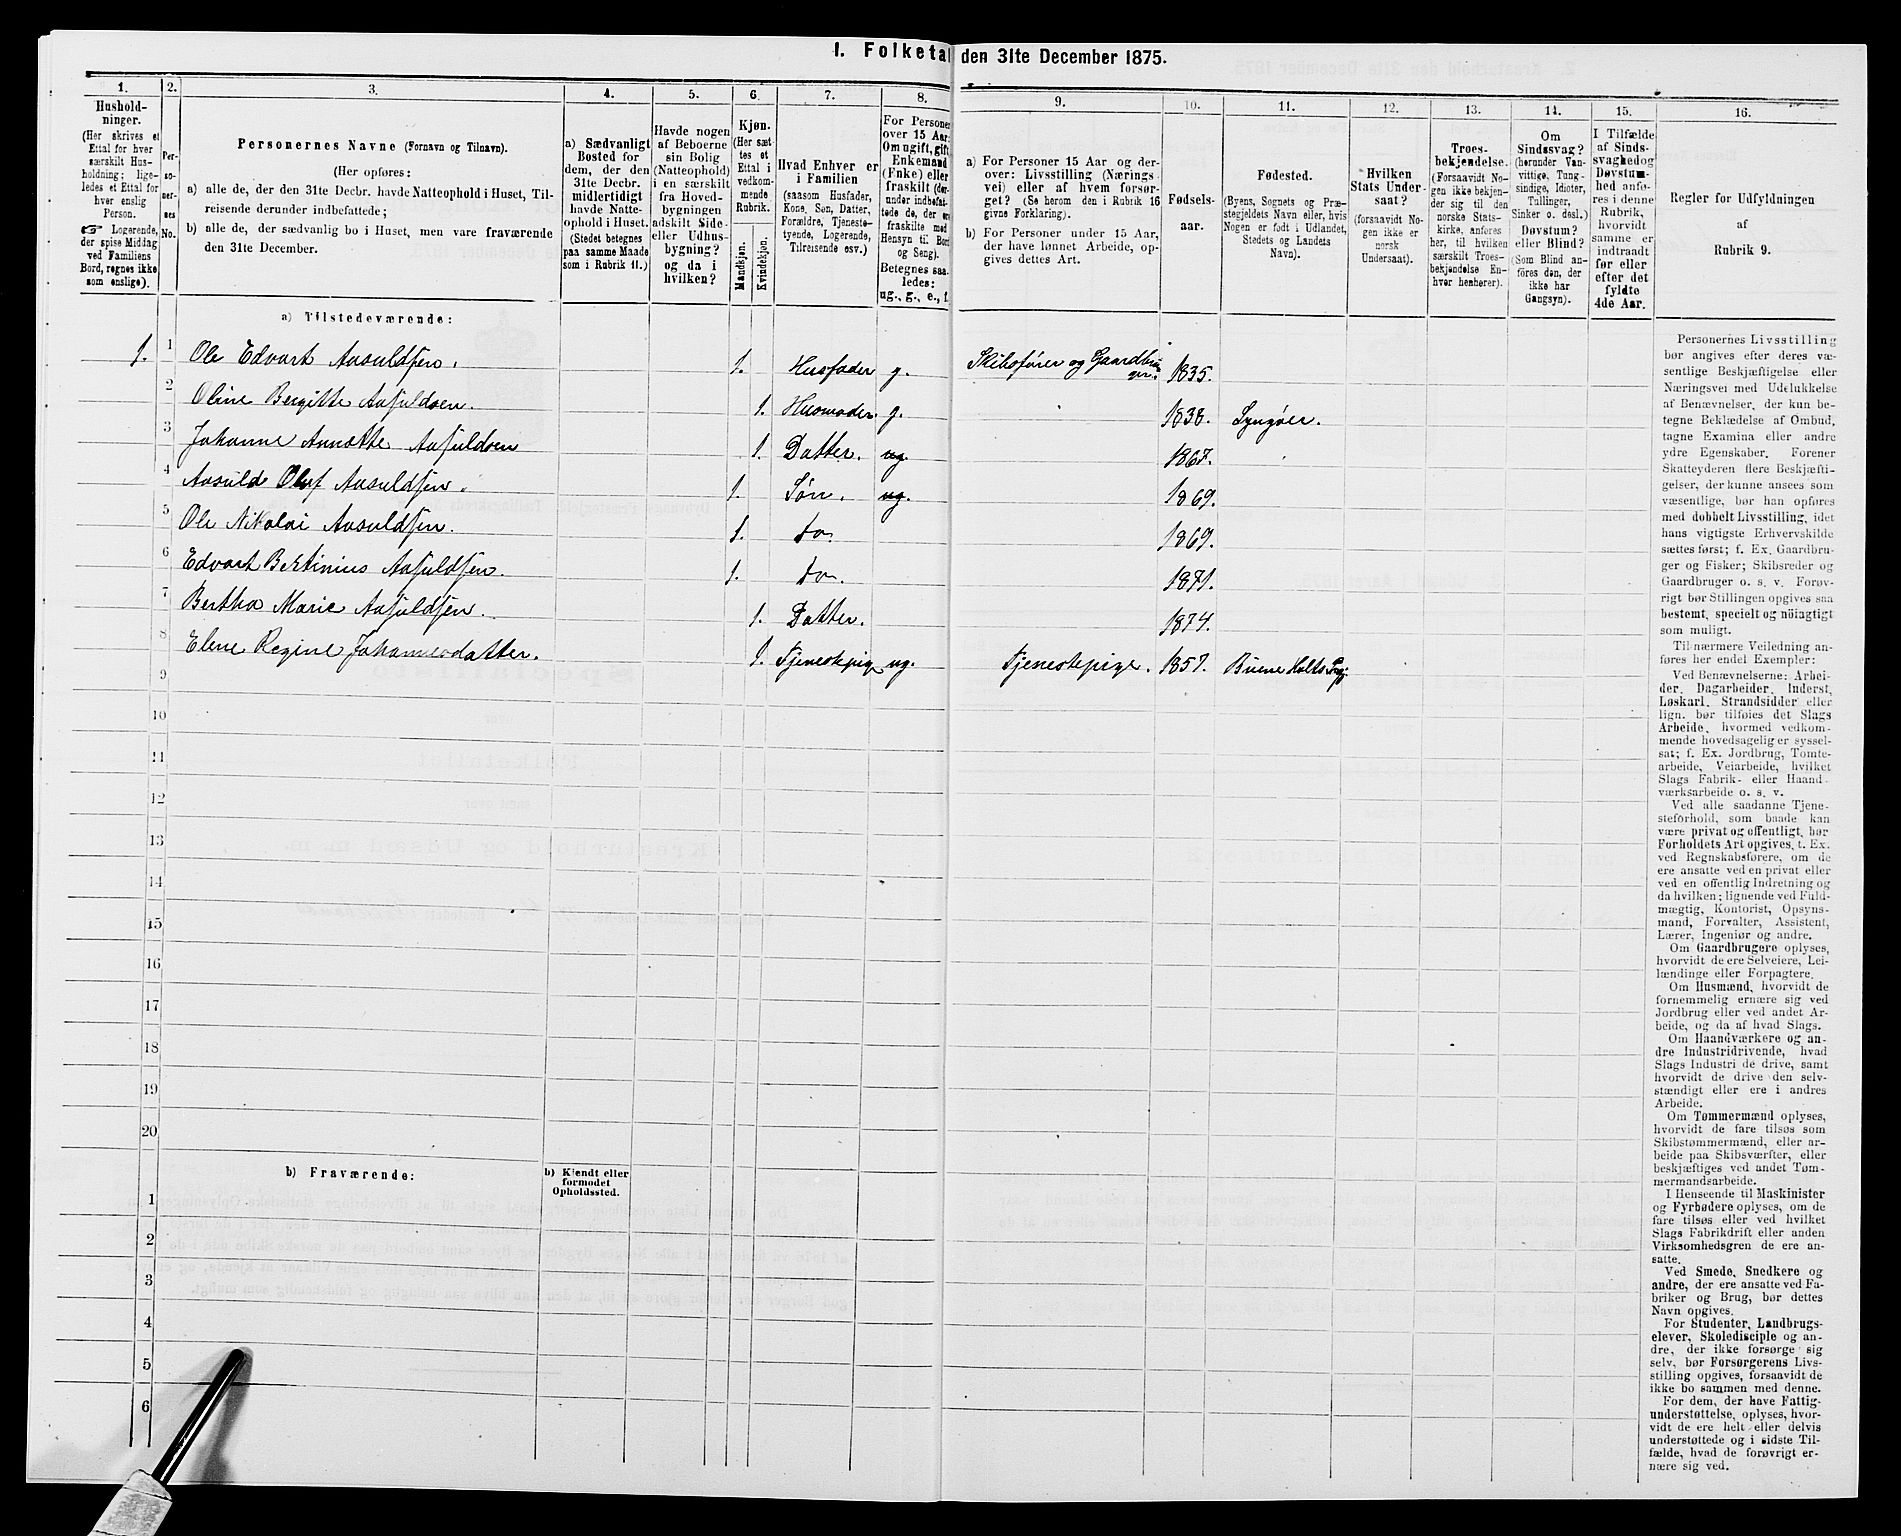 1. Folketal den 31te December 1875.
1. 2. 3. 4. 5. 6. 7. 8. 9. 10. 11. 12. 13. 14. 15. 16.
Hushold-
ninger.
(Her skrives et
Ettal for hver
særskilt Hus-
holdning; lige-
ledes et Ettal for
hver enslig
Person.
☞ Logerende,
der spise Middag
ved Familiens
Bord, regnes ikke
som enslige).
Per-
so-
ner-
nes
No.
Personernes Navne (Fornavn og Tilnavn).
(Her opføres:
a) alle de, der den 31te Decbr. havde Natteophold i Huset, Til-
reisende derunder indbefattede;
b) alle de, der sædvanlig bo i Huset, men vare fraværende
den 31te December.
a) Sædvanligt
Bosted for
dem, der den
31te Decbr.
midlertidigt
havde Natte-
ophold i Huset.
(Stedet betegnes
paa samme Maade
som i Rubrik 11.)
Havde nogen
af Beboerne
sin Bolig
(Natteophold)
i en særskilt
fra Hoved-
bygningen
adskilt Side-
eller Udhus-
bygning?
og da i
hvilken?
Kjøn.
(Her sæt-
tes et
Ettal i
vedkom-
mende
Rubrik.
Mandkjøn.
Kvindekjøn.
Hvad Enhver er
i Familien
(saasom Husfader,
Kone, Søn, Datter,
Forældre, Tjeneste-
tyende, Logerende,
Tilreisende osv.)
For Personer
over 15 Aar:
Om ugift, gift,
Enkemand
(Enke) eller
fraskilt (der-
under indbefat-
tede de, der er
fraskilte med
Hensyn til Bord
og Seng).
Betegnes saa-
ledes:
ug., g., e., f.
a) For Personer 15 Aar og der-
over: Livsstilling (Nærings-
vei) eller af hvem forsør-
get? (Se herom den i Rubrik 16
givne Forklaring).
b) For Personer under 15 Aar,
der have lønnet Arbeide, op-
gives dettes Art.
Fødsels-
aar.
Fødested.
(Byens, Sognets og Præ-
stegjeldets Navn eller, hvis
Nogen er født i Udlandet,
Stedets og Landets
Navn).
Hvilken
Stats Under-
saat?
(forsaavidt No-
gen ikke er
norsk
Undersaat).
Troes-
bekjendelse.
(Forsaavidt No-
gen ikke bekjen-
der sig til den
norske Stats-
kirke, anføres
her, til hvilken
særskilt Troes-
bekjendelse En-
hver henhører).
Om
Sindssvag?
(herunder Van-
vittige, Tung-
sindige, Idioter,
Tullinger,
Sinker o. desl.)
Døvstum?
eller Blind?
(Som Blind an-
føres den, der
ikke har
Gangsyn).
I Tilfælde
af Sinds-
svaghed og
Døvstum-
hed anfø-
res i denne
Rubrik,
hvorvidt
samme er
indtraadt
før eller
efter det
fyldte
4de Aar.
Regler for Udfyldningen
af
Rubrik 9.
a) Tilstedeværende:
1. 1 Ole Edvart Aasuldsen. 1. Husfader g. Skibsfører og Gaardbru- ger. 1835.
2 Oline Bergitte Aasuldsen. 1. Husmoder. g. 1838. Lyngøer.
3 Johanne Annette Aasuldsen 1. Datter. ug. 1867.
4 Aasuld Oluf Aasuldsen. 1. Søn. ug. 1869.
5 Ole Nikolai Aasuldsen. 1. do. 1869.
6 Edvart Bertinius Aasuldsen. 1. do. 1871.
7 Bertha Marie Aasuldsen. 1. Datter. 1874.
8 Elene Regine Johannesdatter. 1. Tjenestepige ug. Tjenestepige. 1857. Holts
9
10
11
12
13
14
15
16
17
18
19
20
b) Fraværende:
b) Kjendt eller
formodet
Opholdssted.
1
2
3
4
5
6
Personernes Livsstilling
bør angives efter deres væ-
sentlige Beskjæftigelse eller
Næringsvei med Udelukkelse
af Benævnelser, der kun be-
tegne Beklædelse af Ombud,
tagne Examina eller andre
ydre Egenskaber. Forener
Skatteyderen flere Beskjæfti-
gelser, der kunne ansees som
væsentlige, bør han opføres
med dobbelt Livsstilling, idet
hans vigtigste Erhvervskilde
sættes først; f. Ex. Gaardbru-
ger og Fisker; Skibsreder og
Gaardbruger o. s. v. Forøv-
rigt bør Stillingen opgives saa
bestemt, specielt og nöiagtigt
som muligt.
Til nærmere Veiledning an-
føres her endel Exempler:
Ved Benævnelserne: Arbei-
der, Dagarbeider, Inderst,
Løskarl, Strandsidder eller
lign. bør tilføies det Slags
Arbeide, hvormed vedkom-
mende hovedsagelig er syssel-
sat; f. Ex. Jordbrug, Tomte-
arbeide, Veiarbeide, hvilket
Slags Fabrik- eller Haand-
værksarbeide o. s. v.
Ved alle saadanne Tjene-
steforhold, som baade kan
være privat og offentligt, bør
Forholdets Art opgives, t. Ex.
ved Regnskabsførere, om de
ere ansatte ved en privat eller
ved en offentlig Indretning og
da hvilken; lignende ved Fuld-
mægtig, Kontorist, Opsyns-
mand, Forvalter, Assistent,
Lærer, Ingeniør og andre.
Om Gaardbrugere oplyses,
hvorvidt de ere Selveiere, Lei-
lændinge eller Forpagtere.
Om Husmænd, hvorvidt de
fornemmelig ernære sig ved
Jordbrug eller ved andet Ar-
beide, og da af hvad Slags.
Om Haandværkere og an-
dre Industridrivende, hvad
Slags Industri de drive, samt
hvorvidt de drive den selv-
stændigt eller ere i andres
Arbeide.
Om Tømmermænd oplyses,
hvorvidt de fare tilsøs som
Skibstømmermænd, eller ar-
beide paa Skibsværfter, eller
beskjæftiges ved andet Tøm-
mermandsarbeide.
I Henseende til Maskinister
og Fyrbødere oplyses, om de
fare tilsøs eller ved hvilket
Slags Fabrikdrift eller anden
Virksomhedsgren de ere an-
satte.
Ved Smede, Snedkere og
andre, der ere ansatte ved Fa-
briker og Brug, bør dettes
Navn opgives.
For Studenter, Landbrugs-
elever, Skoledisciple og an-
dre, der ikke forsørge sig
selv, bør Forsørgerens Livs-
stilling opgives, forsaavidt de
ikke bo sammen med denne.
For dem, der have Fattig-
understøttelse, oplyses, hvor-
vidt de ere helt eller delvis
understøttede og i sidste Til-
fælde, hvad de forøvrigt er-
nære sig ved.